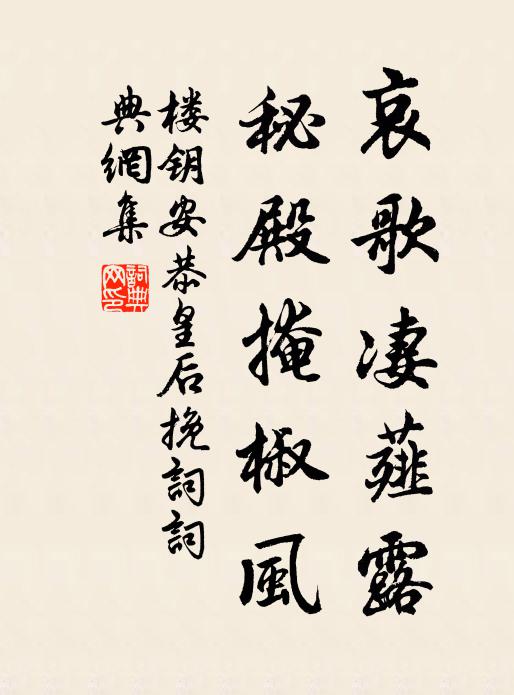 哀歌凄薤露
秘殿掩椒风
楼钥安恭皇后挽詞詞
典網集
詞典
网印